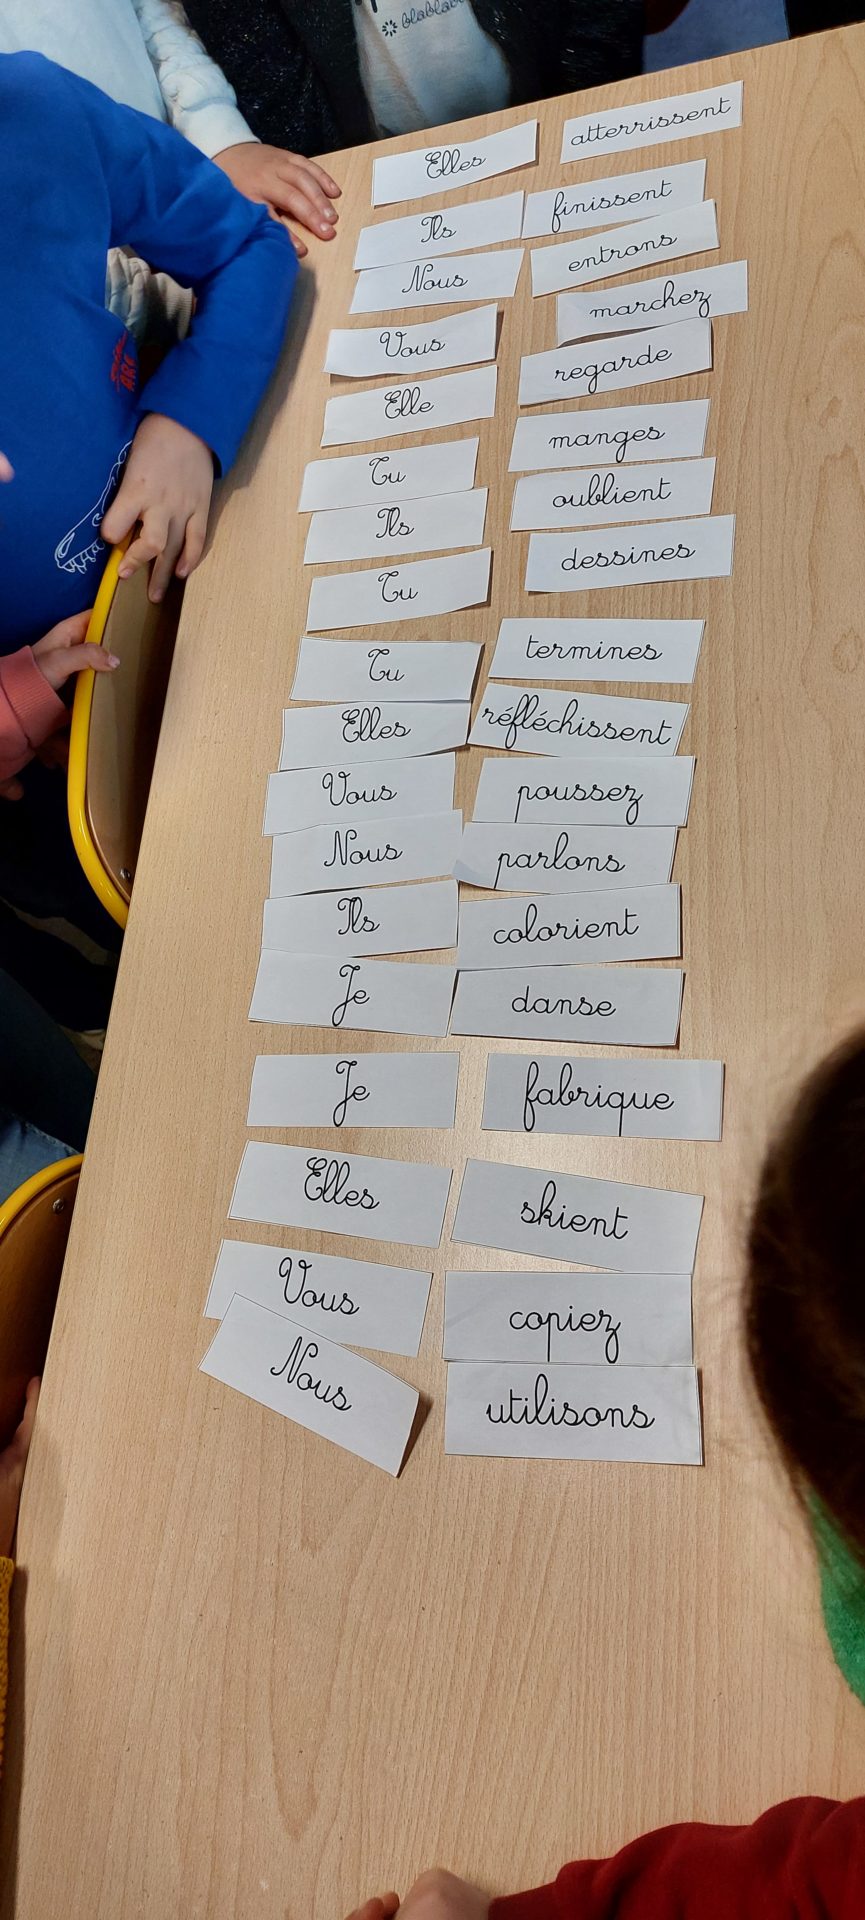 blablabla
Elles atterrissent
Ils finissent
Nous entrons
Vous marchez
Elle regarde
Tu manges
Ils oublient
Tu dessines
Tu termines
Elles réfléchissent
Vous poussez
Nous parlons
Ils colorient
Je danse
Je fabrique
Elles skient
Vous copiez
Nous utilisons